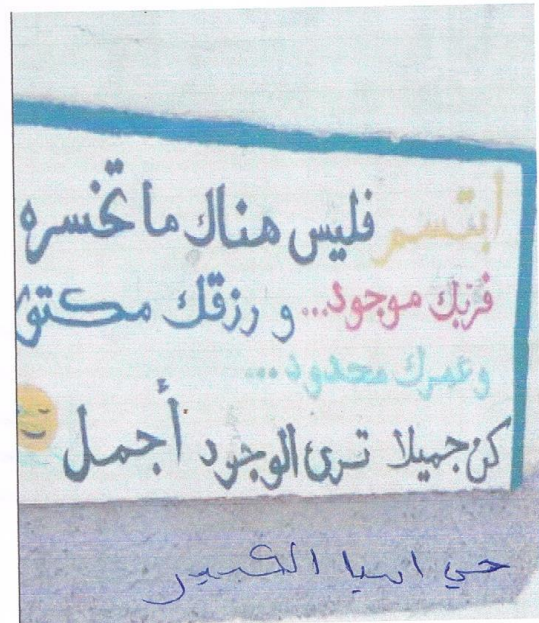 ابتسم فليس هناك ما تخسره
فربك موجود... و رزقك مكتو
وعمرك محدود ...
كن جميلا ترى الوجود أجمل
حي اسيا الكبير